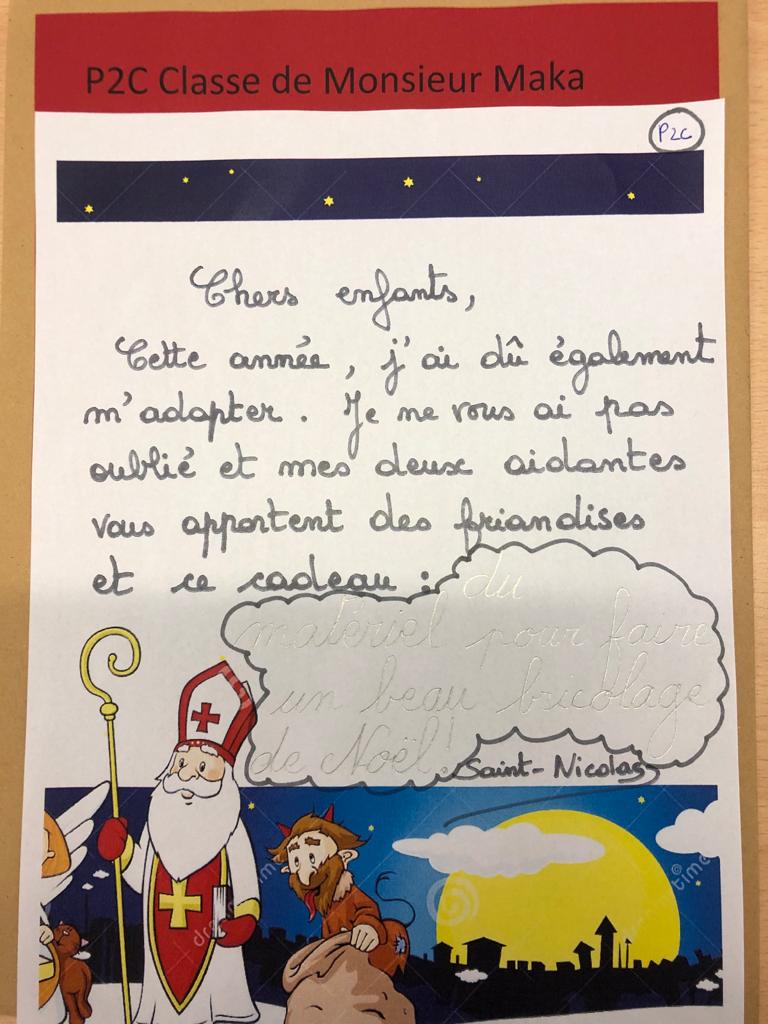 P2C Classe de Monsieur Maka
P2C
Chers enfants,
Cette année, j'ai dû également
m'adapter. Je ne vous ai pas
oublié et mes deux aidantes
vous apportent des friandises
et ce cadeau : du
matériel pour faire
un beau bricolage
de Noël!
Saint-Nicolas